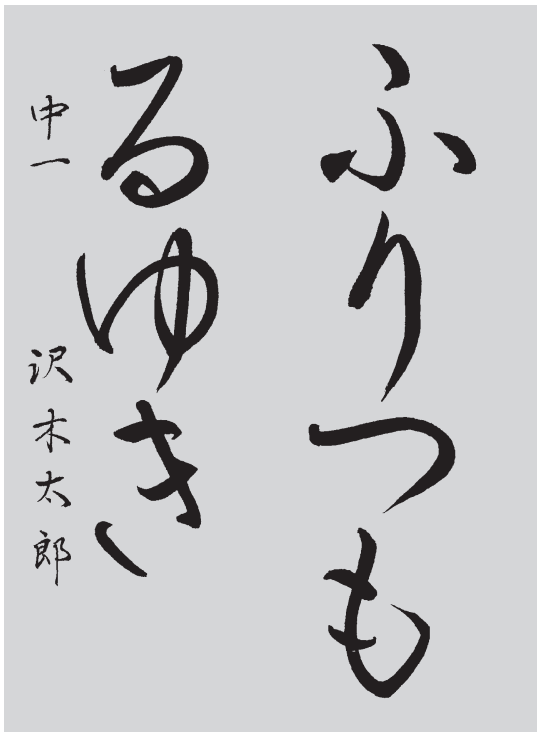 ふりつも
るゆき
中一 沢木太郎